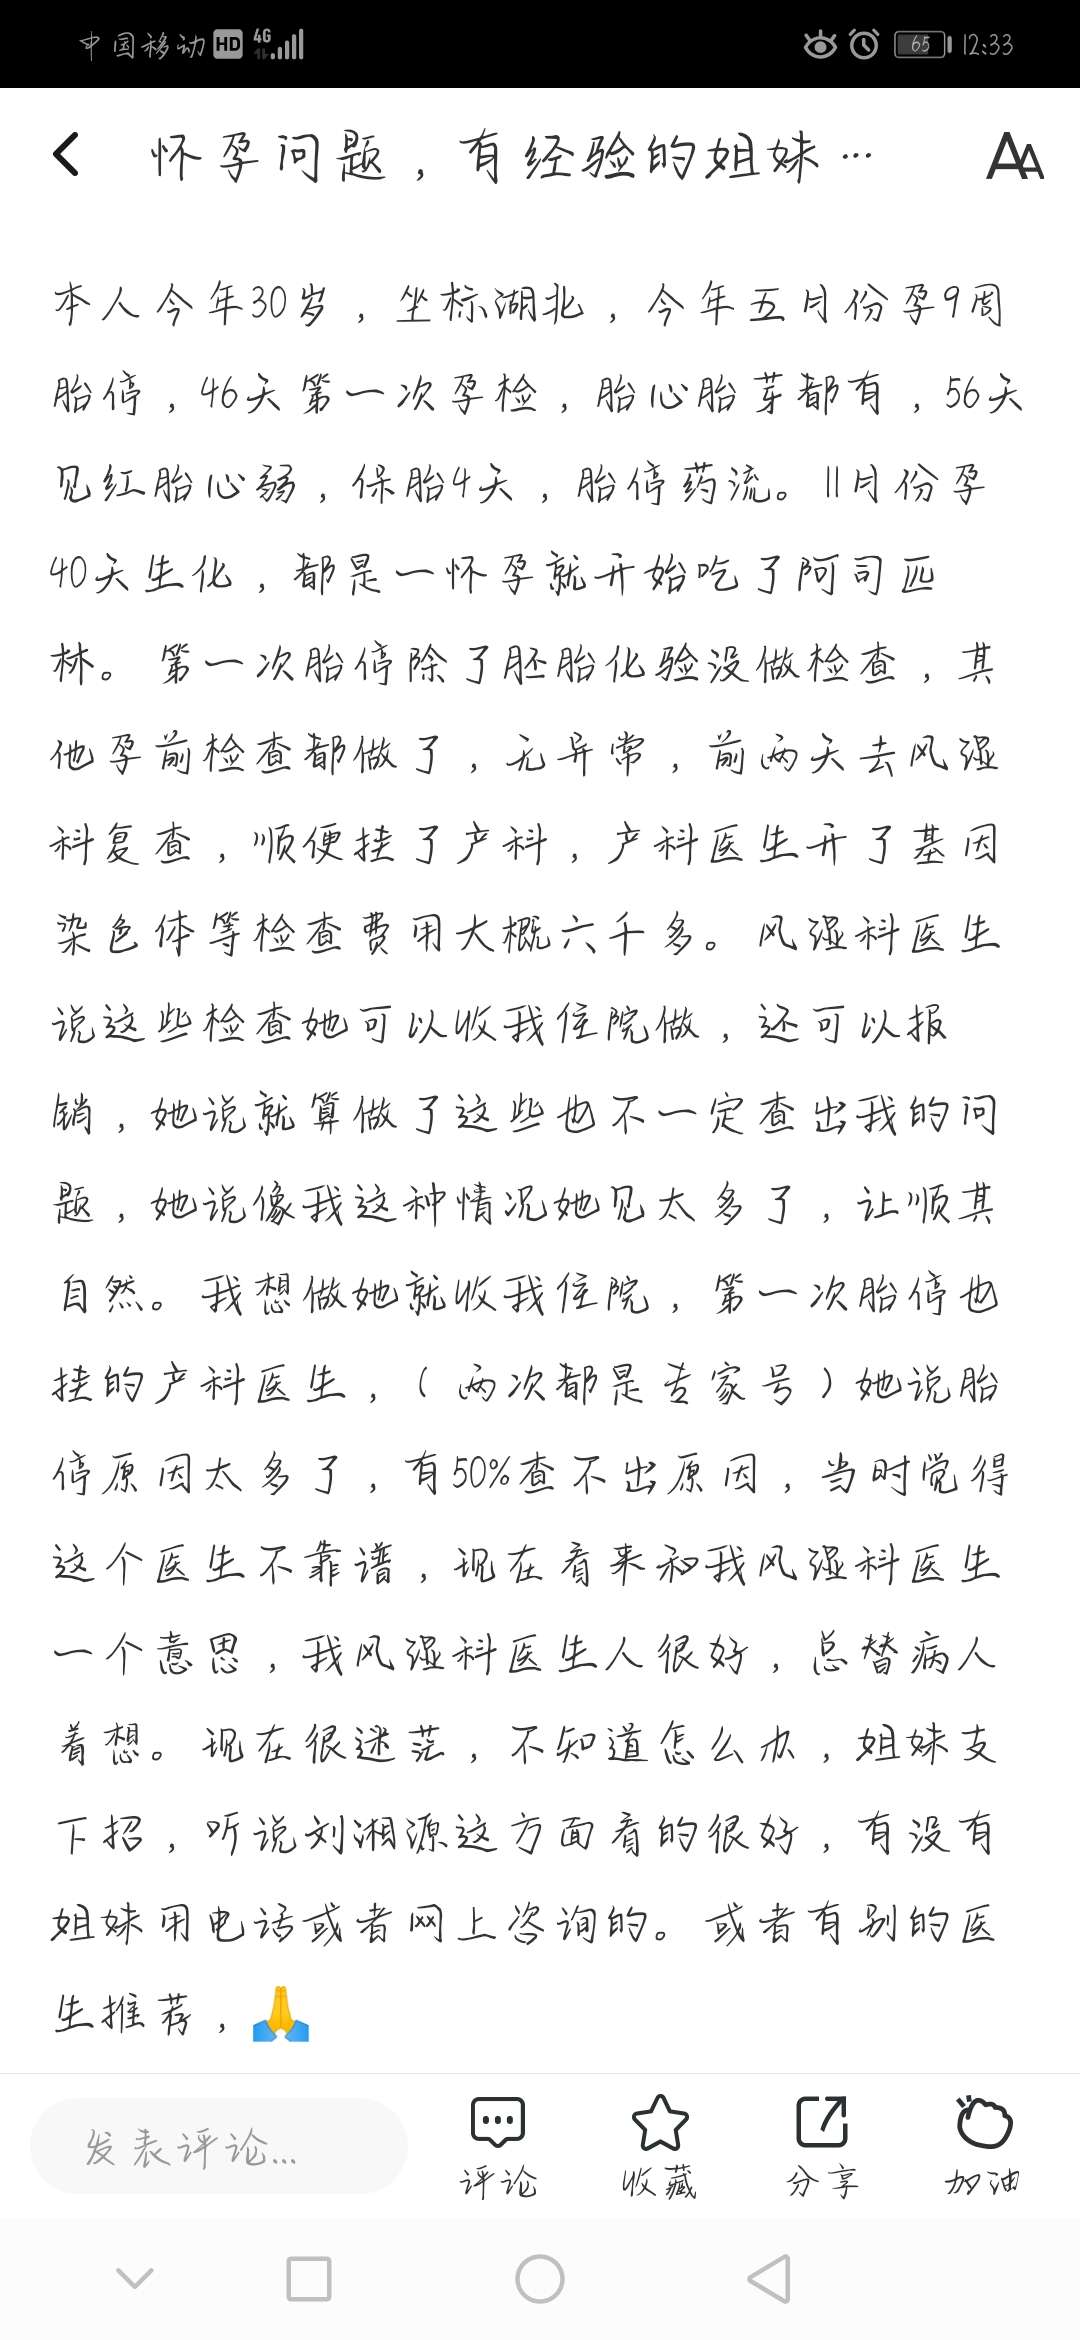 中国移动 HD 4G 65 12:33
怀孕问题，有经验的姐妹…
本人今年30岁，坐标湖北，今年五月份孕9周
胎停，46天第一次孕检，胎心胎芽都有，56天
见红胎心弱，保胎4天，胎停药流。11月份孕
40天生化，都是一怀孕就开始吃了阿司匹
林。第一次胎停除了胚胎化验没做检查，其
他孕前检查都做了，无异常，前两天去风湿
科复查，顺便挂了产科，产科医生开了基因
染色体等检查费用大概六千多。风湿科医生
说这些检查她可以收我住院做，还可以报
销，她说就算做了这些也不一定查出我的问
题，她说像我这种情况她见太多了，让顺其
自然。我想做她就收我住院，第一次胎停也
挂的产科医生，（两次都是专家号）她说胎
停原因太多了，有50%查不出原因，当时觉得
这个医生不靠谱，现在看来和我风湿科医生
一个意思，我风湿科医生人很好，总替病人
着想。现在很迷茫，不知道怎么办，姐妹支
下招，听说刘湘源这方面看的很好，有没有
姐妹用电话或者网上咨询的。或者有别的医
生推荐，🙏
发表评论...
评论 收藏 分享 加油